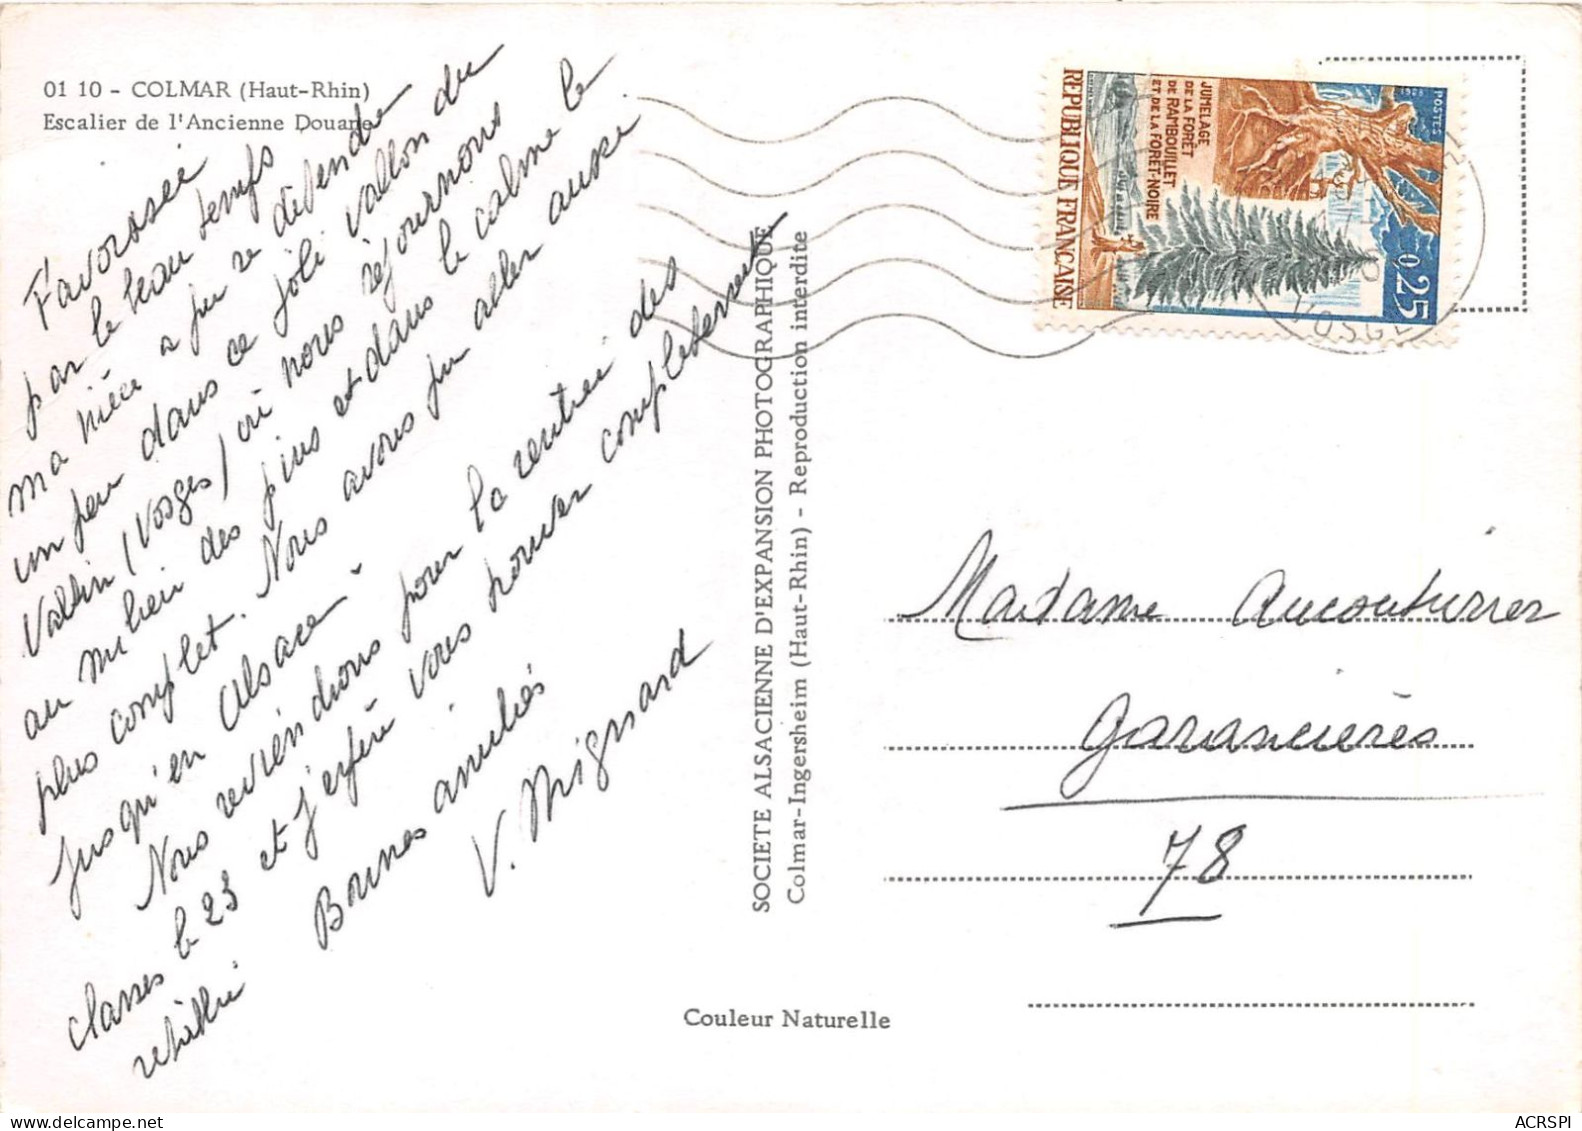 01 10 - COLMAR (Haut-Rhin)
Escalier de l'Ancienne Douane
Favorisée
par le beau temps
ma nièce a pu se défendre
un peu dans ce joli vallon du
Valtin (Vosges) où nous séjournons
au milieu des pins et dans le calme le
plus complet. Nous avons pu aller aussi
jusqu'en Alsace.
Nous reviendrons pour la rentrée des
classes le 23 et j'espère vous trouver complètement
rétablie
Bonnes amitiés
V. Mignard
SOCIETE ALSACIENNE D'EXPANSION PHOTOGRAPHIQUE
Colmar-Ingersheim (Haut-Rhin) - Reproduction interdite
Couleur Naturelle
REPUBLIQUE FRANCAISE
JUMELAGE
DE LA FORÊT
DE RAMBOUILLET
ET DE LA FORÊT-NOIRE
POSTES
0,25
VOSGES
Madame Aucouturier
Garancières
78
ACRSPI